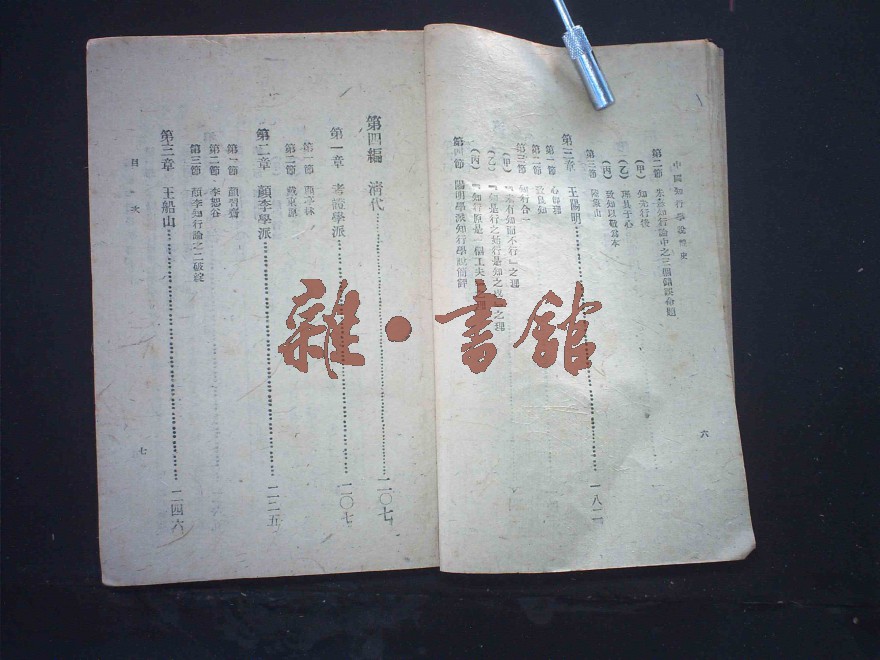 中國知行學說簡史
第二節 朱子知行論中之三個錯誤命題
(甲) 知先行後
(乙) 理具于心
(丙) 致知以敬爲本
第三節 陸象山
第三章 王陽明 一八二
第一節 心卽理
第二節 致良知
第三節 知行合一
(甲) 『未有知而不行』之理
(乙) 『知是行之始行是知之成』之理
(丙) 『知行原是一個工夫』
第四節 陽明學派知行學說簡評
六
第四編 清代 二〇七
第一章 考證學派 二〇七
第一節 顧亭林
第二節 戴東原
第二章 顏李學派 二二五
第一節 顏習齋
第二節 李恕谷
第三節 顏李知行論之二破綻
第三章 王船山 二四六
目次
七
雜·書館